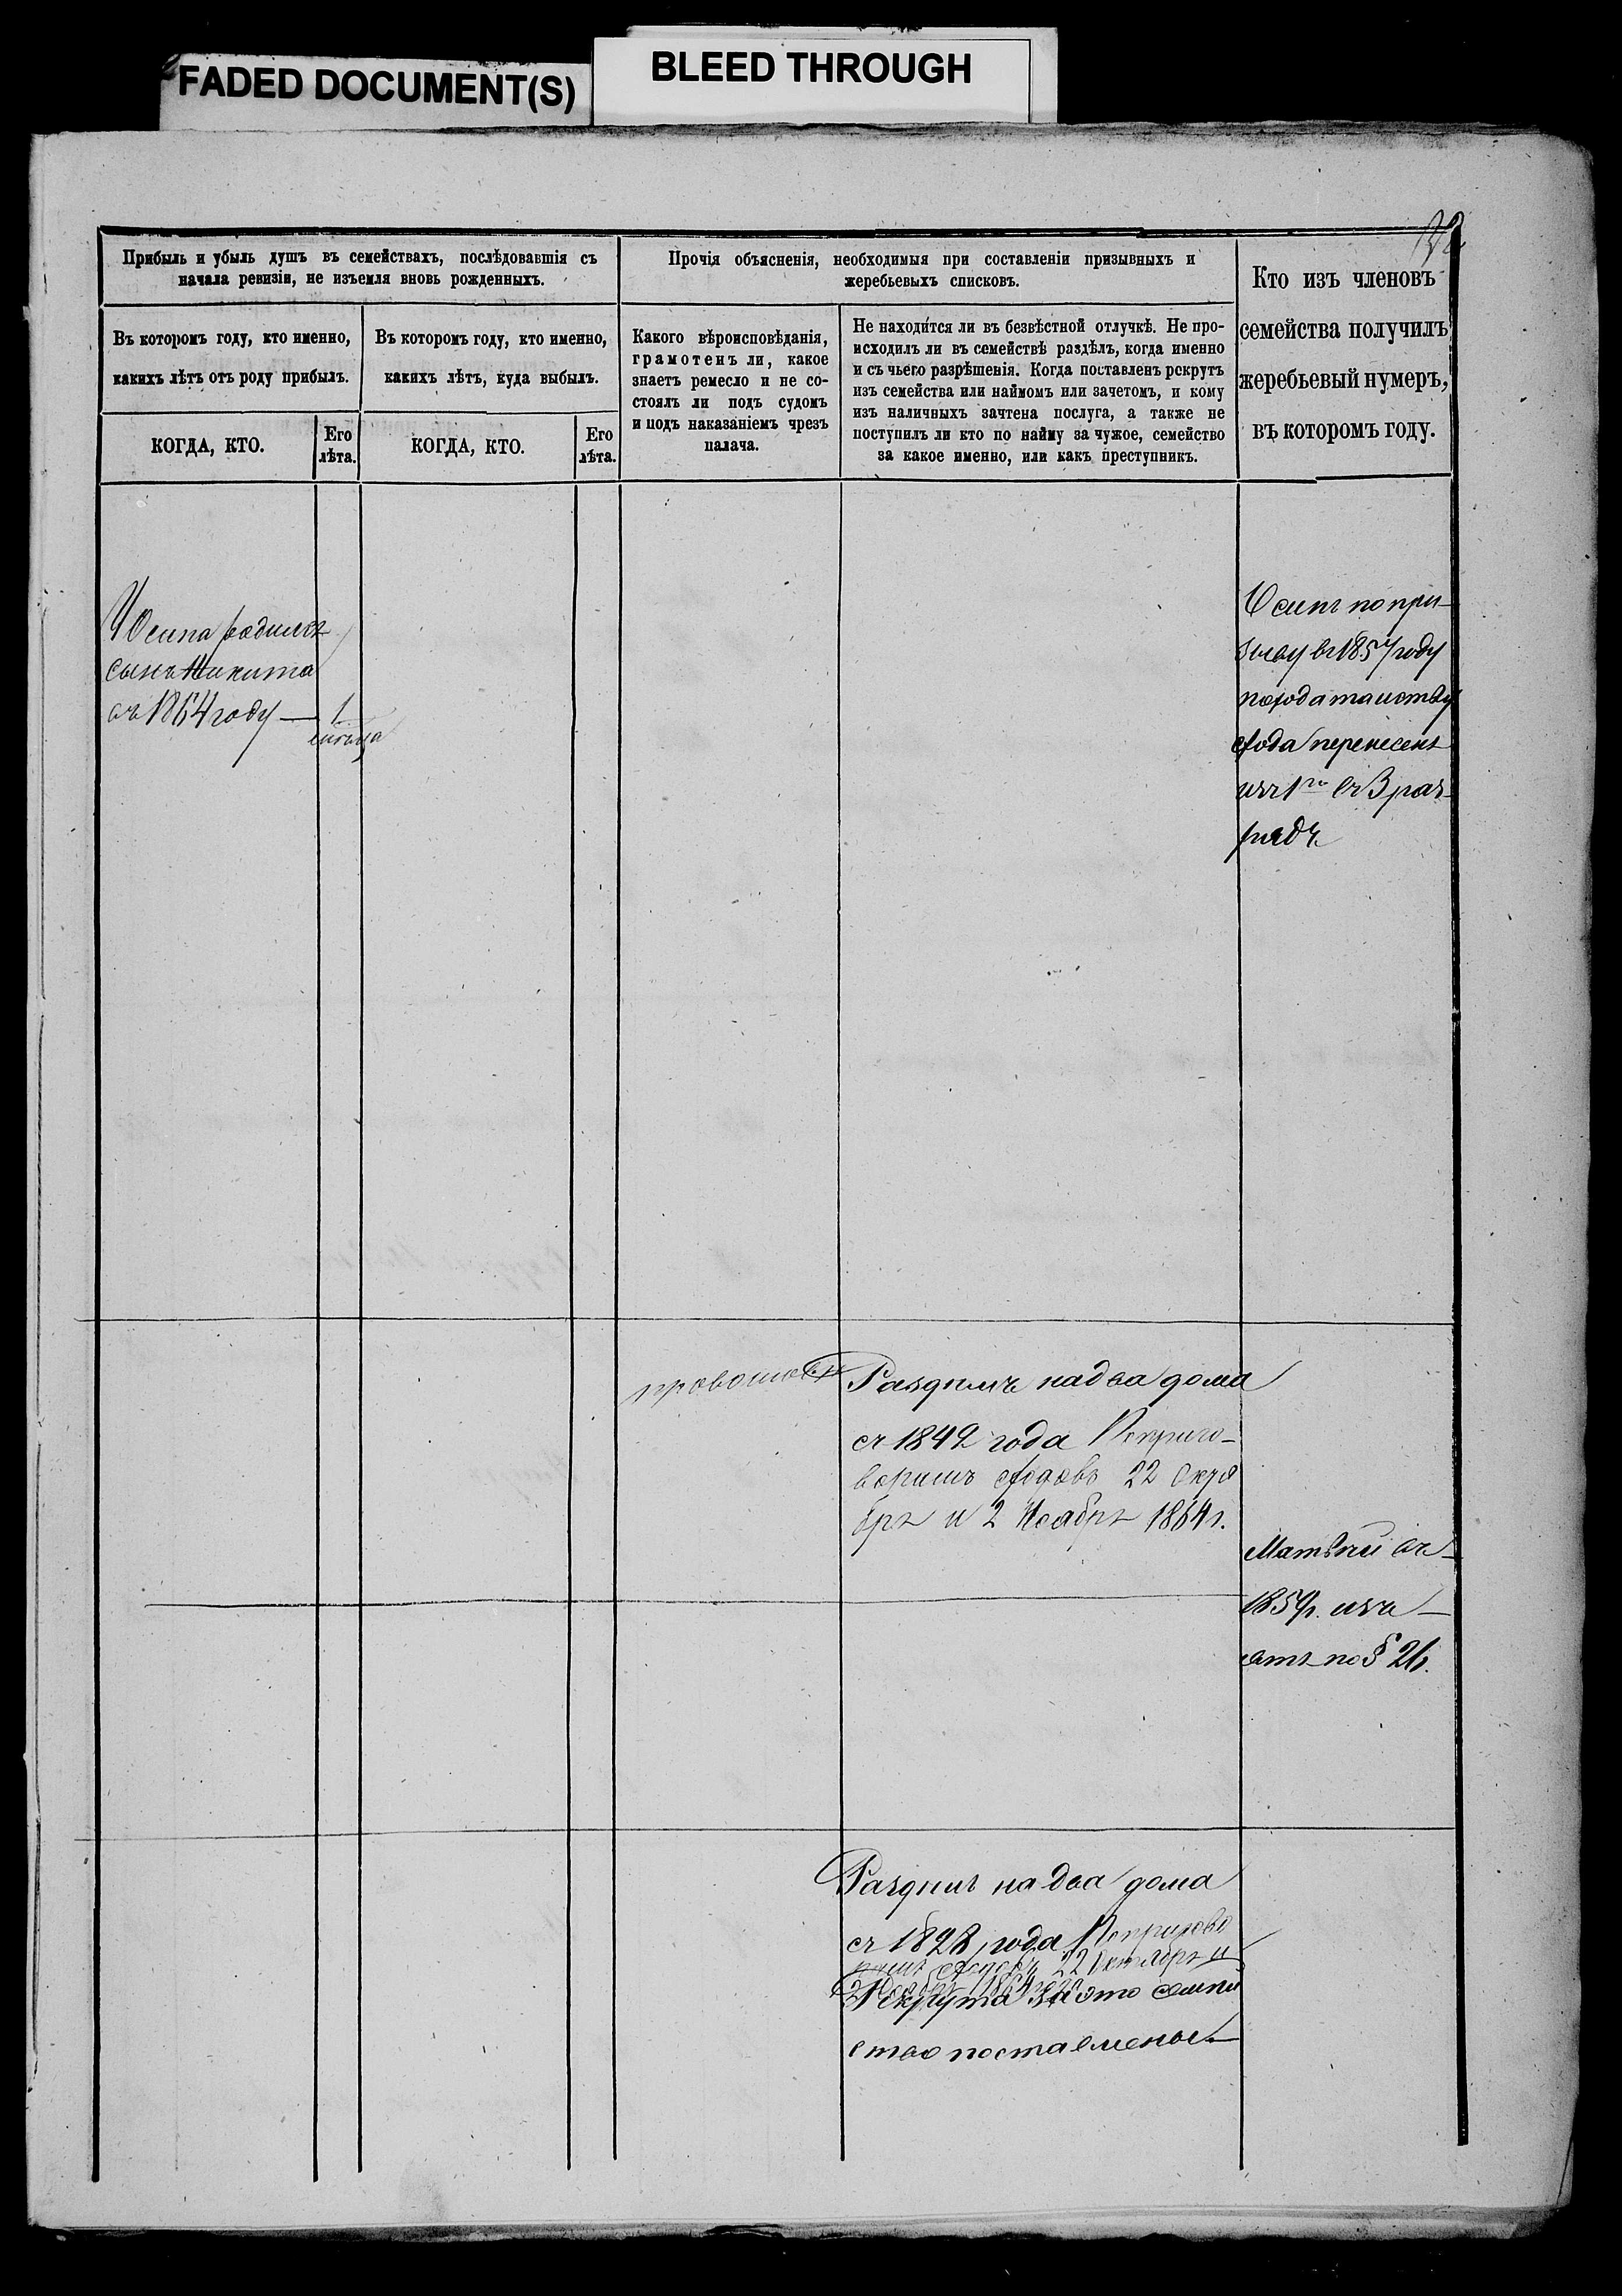 FADED DOCUMENT(S)
BLEED THROUGH
Прибыль и убыль душъ въ семействахъ, послѣдовавшія съ
начала ревизіи, не изъемля вновь рожденныхъ.
Въ которомъ году, кто именно,
какихъ лѣтъ отъ роду прибылъ.
КОГДА, КТО.
Его
лѣта.
Въ которомъ году, кто именно,
какихъ лѣтъ, куда выбылъ.
КОГДА, КТО.
Его
лѣта.
Прочія объясненія, необходимыя при составленіи призывныхъ и
жеребьевыхъ списковъ.
Какого вѣроисповѣданія,
грамотенъ ли, какое
знаетъ ремесло и не со-
стоялъ ли подъ судомъ
и подъ наказаніемъ чрезъ
палача.
Не находится ли въ безвѣстной отлучкѣ. Не про-
исходилъ ли въ семействѣ раздѣлъ, когда именно
и съ чьего разрѣшенія. Когда поставленъ рекрутъ
изъ семейства или наймомъ или зачетомъ, и кому
изъ наличныхъ зачтена послуга, а также не
поступилъ ли кто по найму за чужое, семейство
за какое именно, или какъ преступникъ.
Кто изъ членовъ
семейства получилъ
жеребьевый нумеръ,
въ которомъ году.
У Осипа родился
сынъ Никита
въ 1864 году — 1
Осипъ по при-
зыву въ 1857 году
по ходатайству
схода перенесенъ
изъ 1го въ 3 раз-
рядъ
православн
Раздѣлъ на два дома
съ 1842 года По приго-
ворамъ сходовъ 22 Октя
бря и 2 Ноября 1864 г.
Матвѣй въ
1859г. изъ-
ятъ по § 26.
Раздѣлъ на два дома
съ 1828 года По пригово
рамъ сходовъ 22 Октября и
2 Ноября 1864 года
Рекрута за это семей
ство поставлены